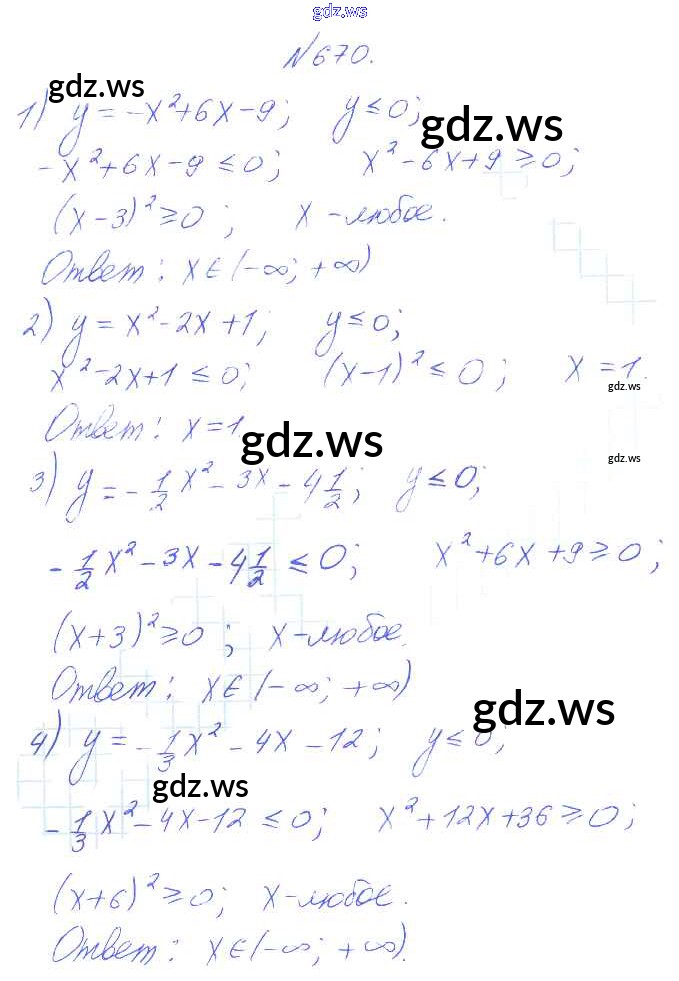 gdz.ws
N 670.
gdz.ws
1) y = -x²+6x-9; y ≤ 0;
gdz.ws
-x²+6x-9 ≤ 0; x²-6x+9 ≥ 0;
(x-3)² ≥ 0; x - любое.
Ответ: x∈(-∞; +∞)
2) y = x²-2x+1; y ≤ 0;
x²-2x+1 ≤ 0; (x-1)² ≤ 0; x = 1.
gdz.ws
Ответ: x=1.
gdz.ws
gdz.ws
3) y = -1/2x² - 3x - 4 1/2; y ≤ 0;
-1/2x² - 3x - 4 1/2 ≤ 0; x²+6x+9 ≥ 0;
(x+3)² ≥ 0; x-любое.
Ответ: x∈(-∞; +∞)
gdz.ws
4) y = -1/3x² - 4x - 12; y ≤ 0;
gdz.ws
-1/3x² - 4x - 12 ≤ 0; x²+12x+36 ≥ 0;
(x+6)² ≥ 0; x-любое.
Ответ: x∈(-∞; +∞).